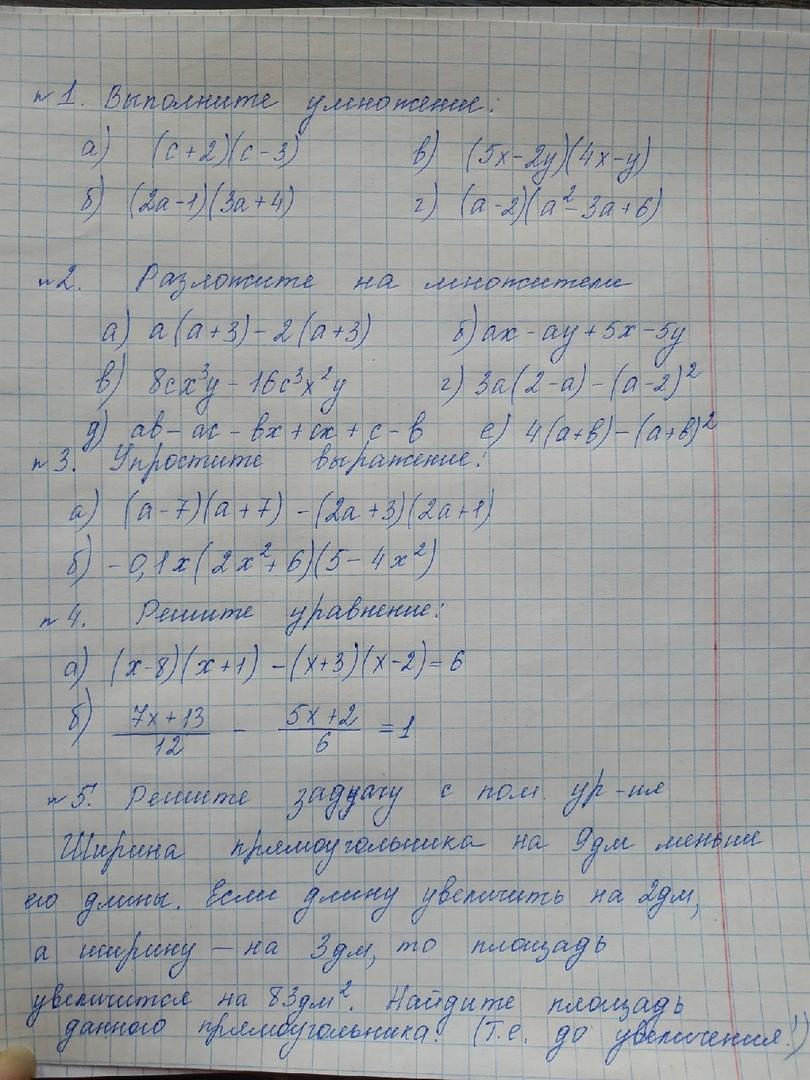 №1. Выполните умножение:
а) (с+2)(с-3) в) (5х-2у)(4х-у)
б) (2а-1)(3а+4) г) (а-2)(а²-3а+6)
№2. Разложите на множители
а) а(а+3)-2(а+3) б) ах-ау+5х-5у
в) 8сх³у-16с³х²у г) 3а(2-а)-(а-2)²
д) ав-ас-вх+сх+с-в е) 4(а+в)-(а+в)²
№3. Упростите выражение:
а) (а-7)(а+7)-(2а+3)(2а+1)
б) -0,1х(2х²+6)(5-4х²)
№4. Решите уравнение:
а) (х-8)(х+1)-(х+3)(х-2)=6
б) (7х+13)/12 - (5х+2)/6 = 1
№5. Решите задачу с пом. ур-ия
Ширина прямоугольника на 9дм меньше
его длины. Если длину увеличить на 2дм,
а ширину — на 3дм, то площадь
увеличится на 83дм². Найдите площадь
данного прямоугольника. (Т.е. до увеличения!)